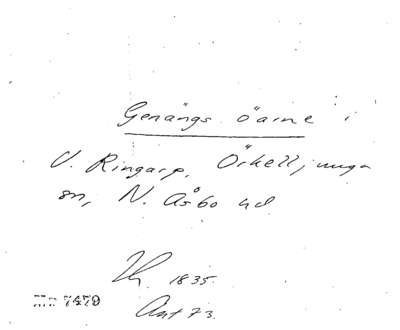 Genängs öarne i
V. Ringarp, Örkelljunga
sn, N. Åsbo hd
1835.
Ant 73.
Mp 7479